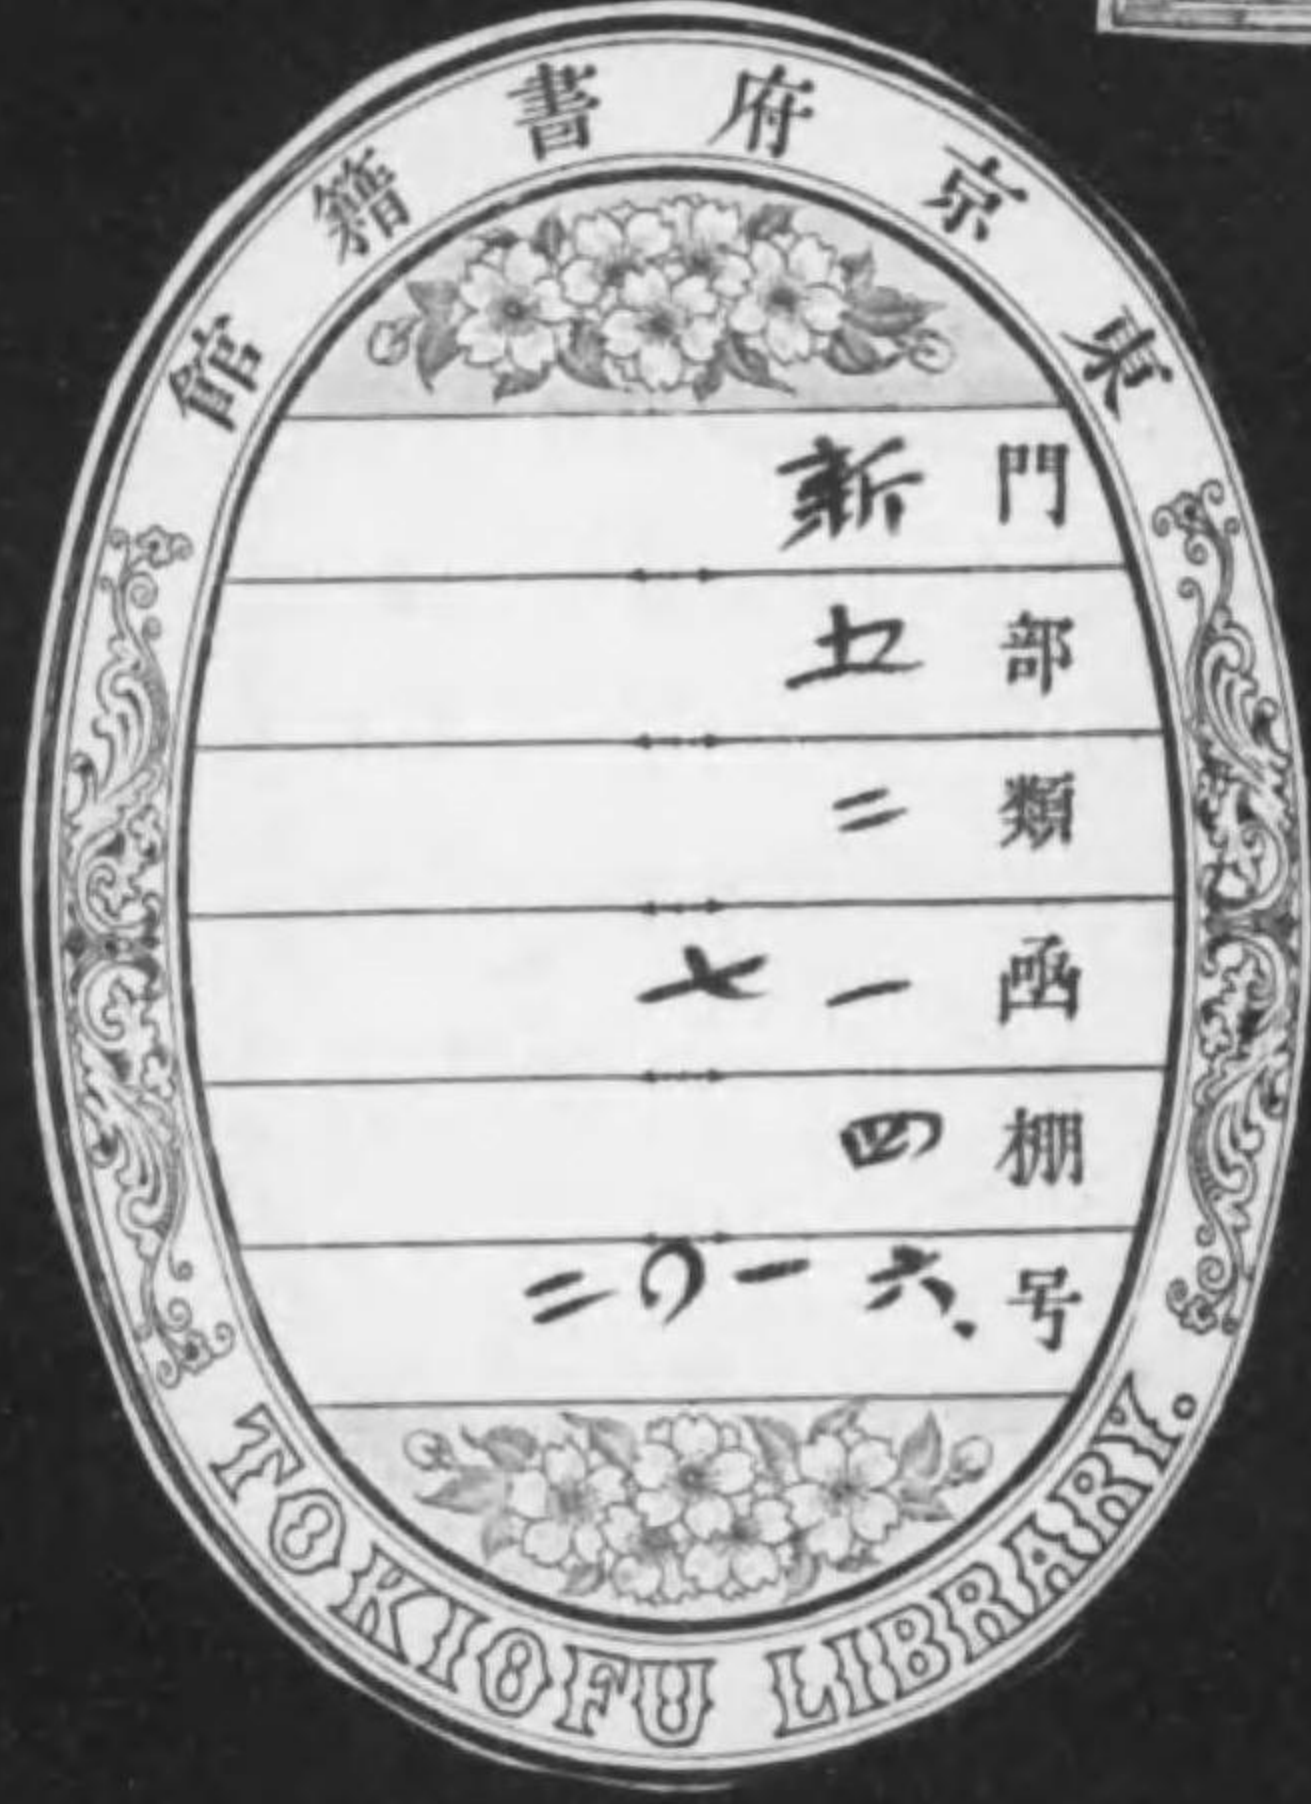 東京府書籍館
門 新
部 五
類 二
凾 一七
棚 四
号 六一〇二
TOKIOFU LIBRARY.